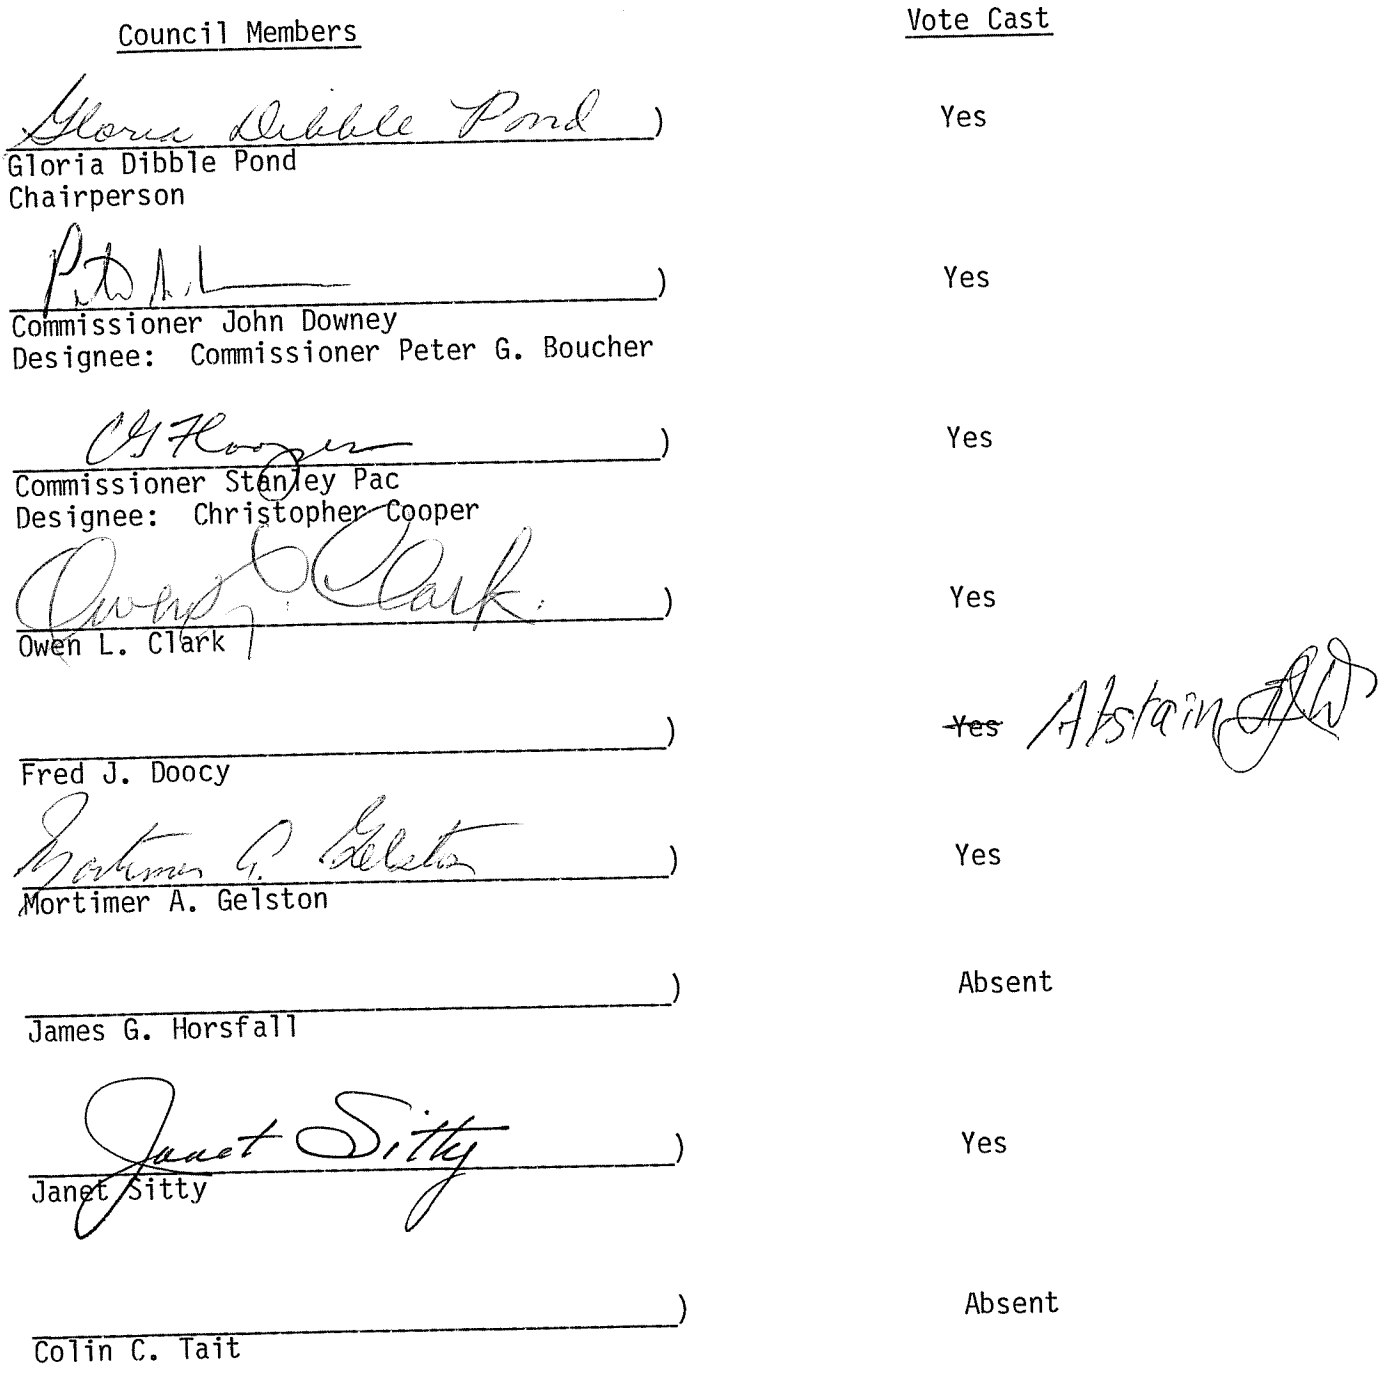 Council Members Vote Cast
Gloria Dibble Pond ) Yes
Gloria Dibble Pond
Chairperson
) Yes
Commissioner John Downey
Designee: Commissioner Peter G. Boucher
) Yes
Commissioner Stanley Pac
Designee: Christopher Cooper
Owen L. Clark. ) Yes
Owen L. Clark
) Yes Abstain
Fred J. Doocy
Mortimer A. Gelston ) Yes
Mortimer A. Gelston
) Absent
James G. Horsfall
Janet Sitty ) Yes
Janet Sitty
) Absent
Colin C. Tait